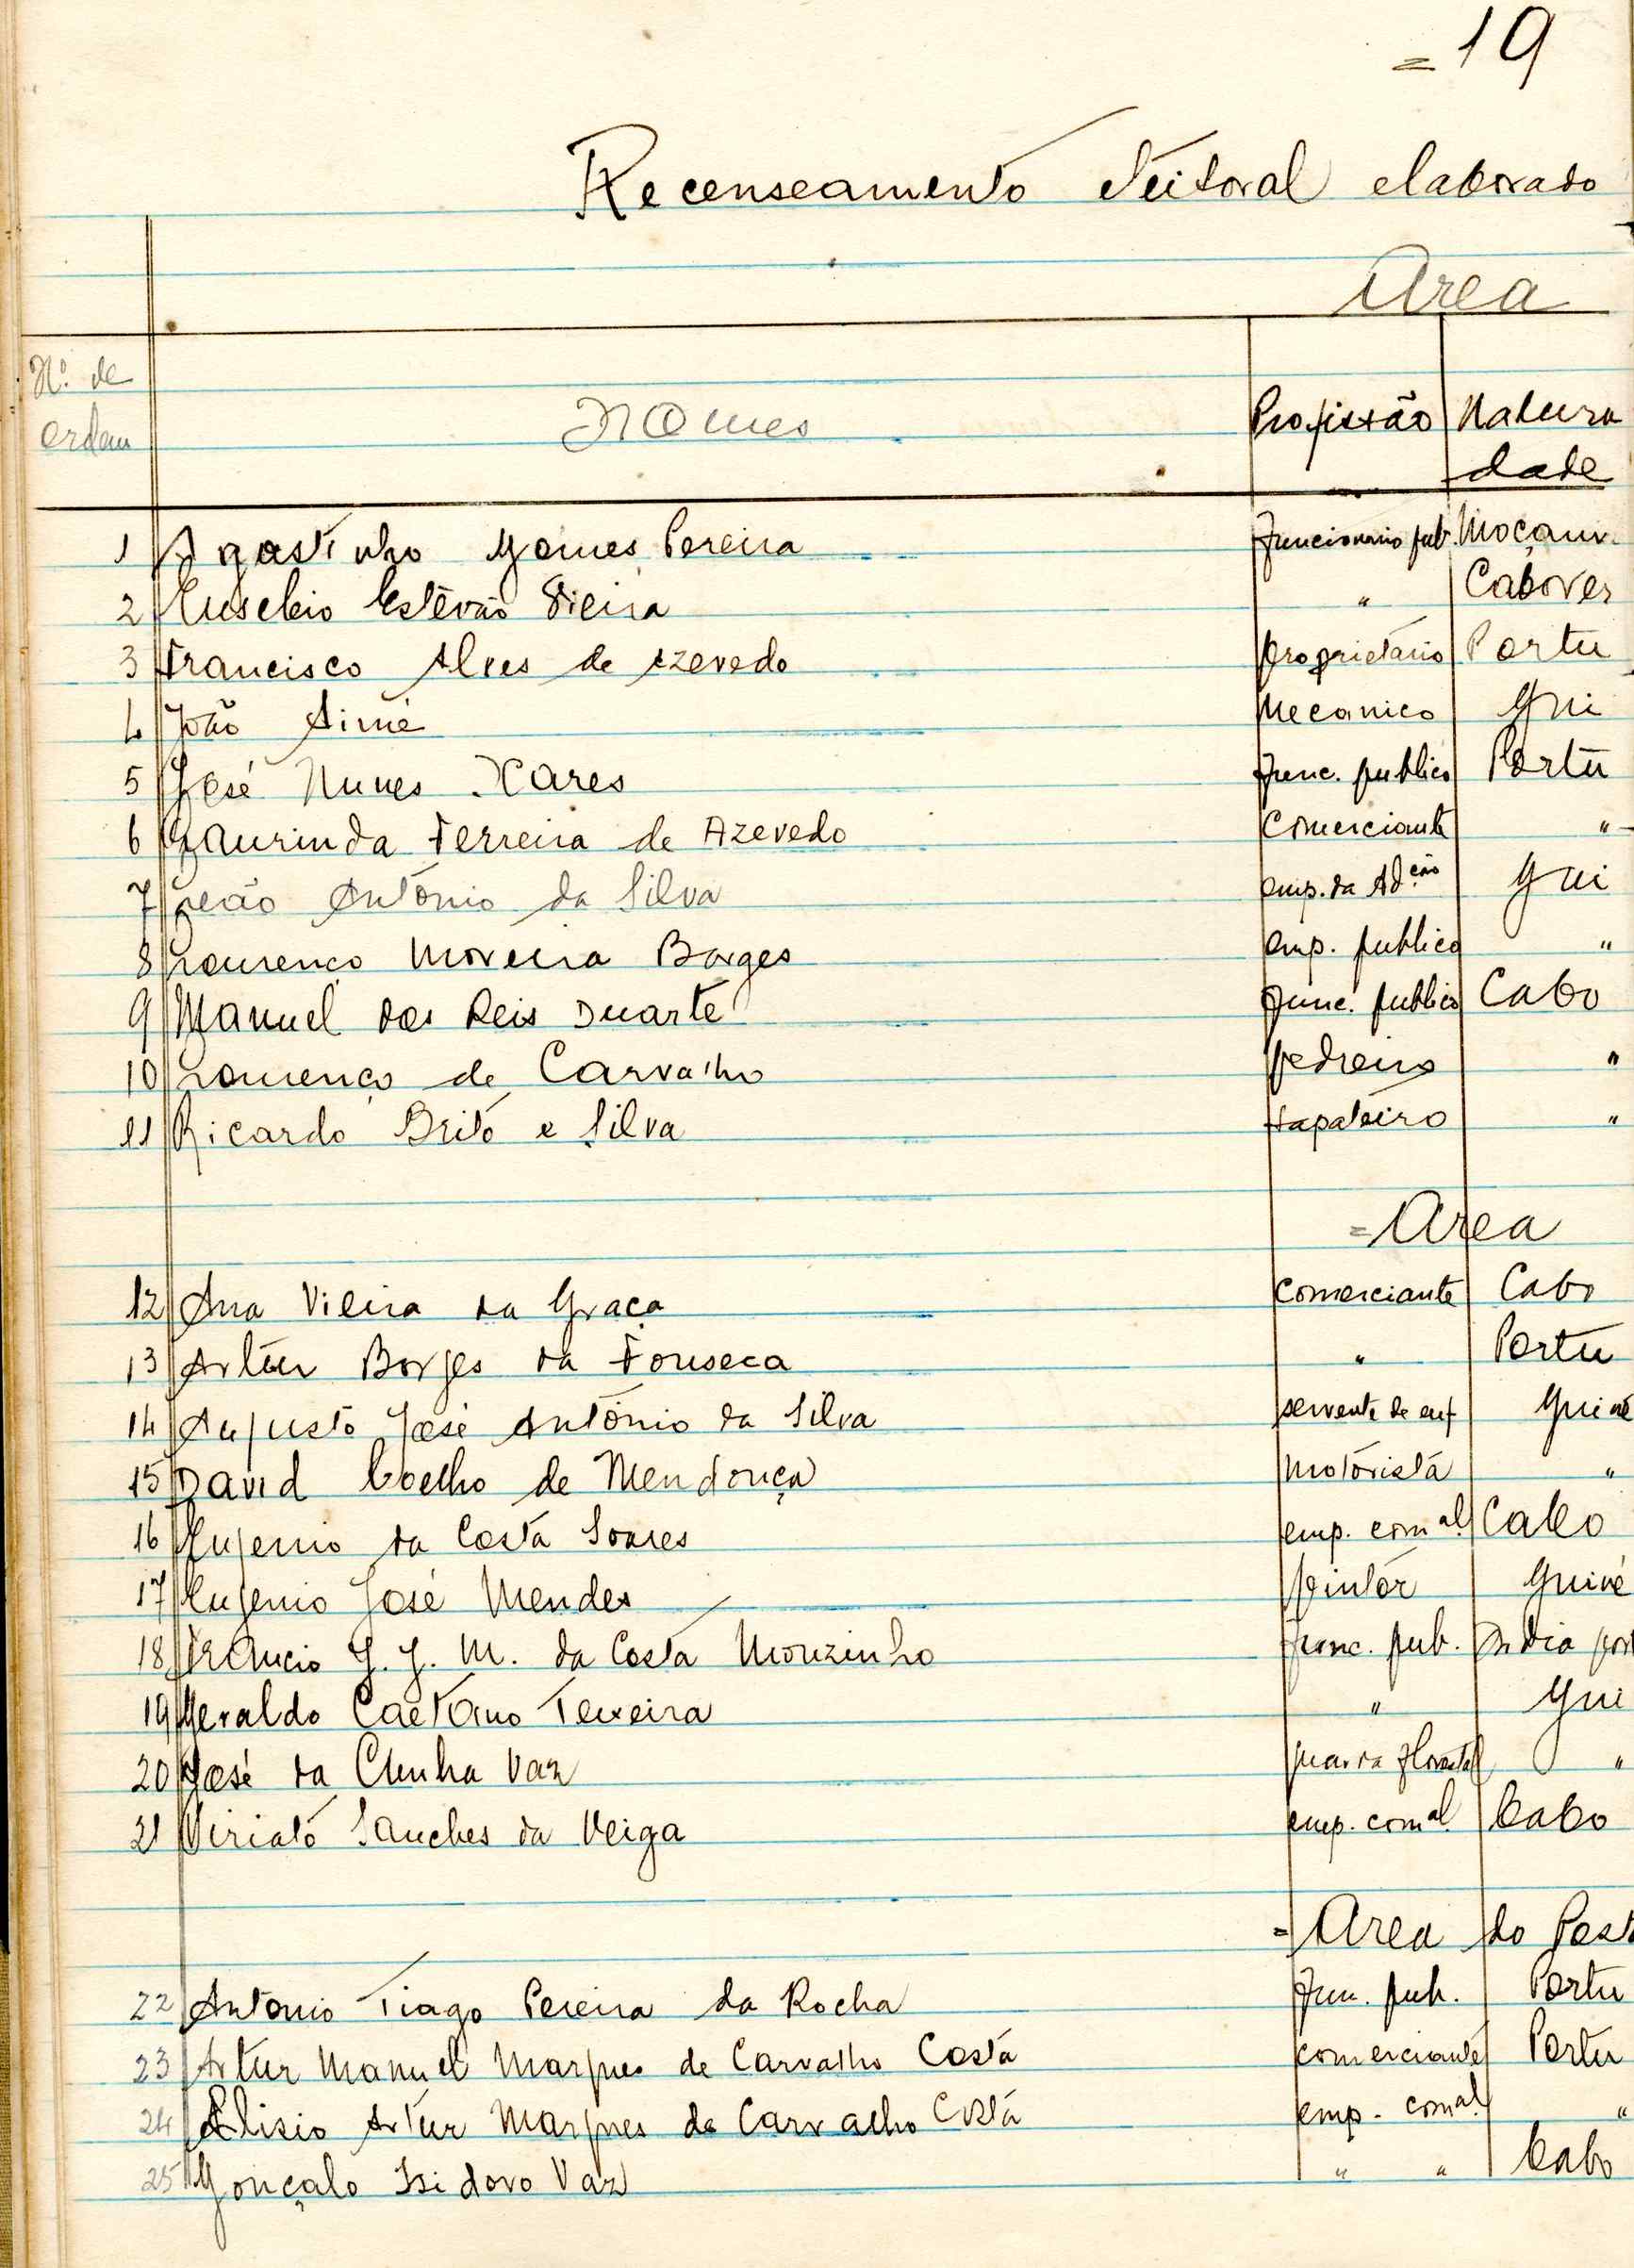 = 19
Recenseamento eleitoral elaborado
Area
Nº de ordem Nomes Profissão Natura
dade
1 Agostinho Gomes Pereira Funcionario pub. Moçam.
2 Eusebio Estêvão Vieira " Cabover
3 Francisco Alves de Azevedo proprietario Portu
4 João Aimé Mecanico Gui
5 José Nunes Xares Func. publico Portu
6 Laurinda Ferreira de Azevedo Comerciante "
7 Leão António da Silva emp. da Adção Gui
8 Lourenço Moreira Borges emp. publico "
9 Manuel dos Reis Duarte Func. publico Cabo
10 Lourenço de Carvalho pedreiro "
11 Ricardo Brito e Silva sapateiro "
= Area
12 Ana Vieira da Graça Comerciante Cabo
13 Artur Borges da Fonseca " Portu
14 Augusto José António da Silva servente de enf Guiné
15 David Coelho de Mendonça Motorista "
16 Eugenio da Costa Soares emp. comal Cabo
17 Eugenio José Mendes pintor Guiné
18 J. J. M. da Costa Mouzinho func. pub. India port
19 Geraldo Caetano Teixeira " Gui
20 José da Cunha Vaz guarda florestal "
21 Viriato Sanches da Veiga emp. comal. Cabo
= Area do Post
22 Antonio Tiago Pereira da Rocha Fun. pub. Portu
23 Artur Manuel Marques de Carvalho Costa comerciante Portu
24 Elisio Artur Marques de Carvalho Costa emp. comal "
25 Gonçalo Isidoro Vaz " " Cabo